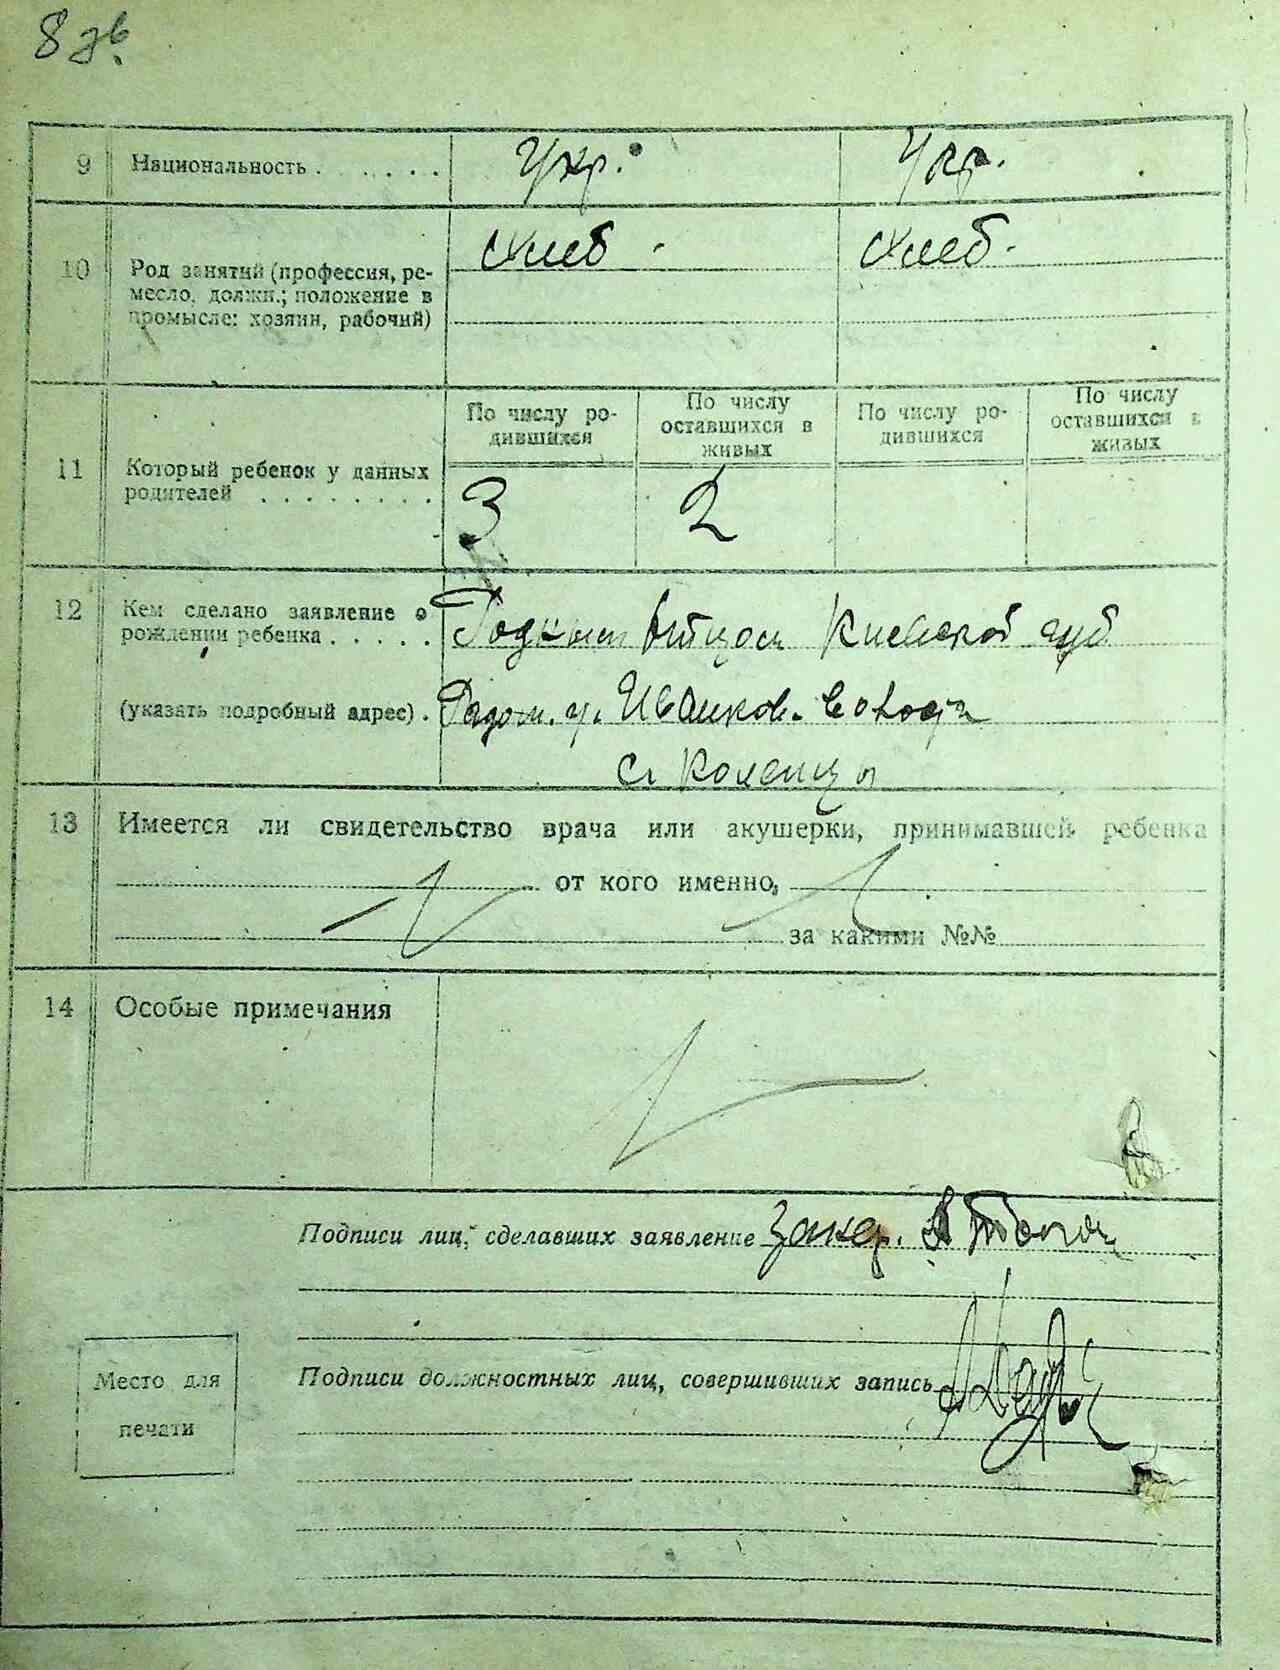 8 зв.
9 Национальность . . . . . . Укр. Укр.
10 Род занятий (профессия, ре-
месло, должн.; положение в
промысле: хозяин, рабочий)
Хлеб. Хлеб.
По числу ро-
дившихся
По числу
оставшихся в
живых
По числу ро-
дившихся
По числу
оставшихся в
живых
11 Который ребенок у данных
родителей . . . . . . . .
3 2
12 Кем сделано заявление о
рождении ребенка . . . . . Родным отцом Киевской губ
(указать подробный адрес) . Радом. у. Иванков. волости
с. Коленцы
13 Имеется ли свидетельство врача или акушерки, принимавшей ребенка
от кого именно,
за какими №№
14 Особые примечания
Подписи лиц, сделавших заявление
Подписи должностных лиц, совершивших запись
Место для
печати